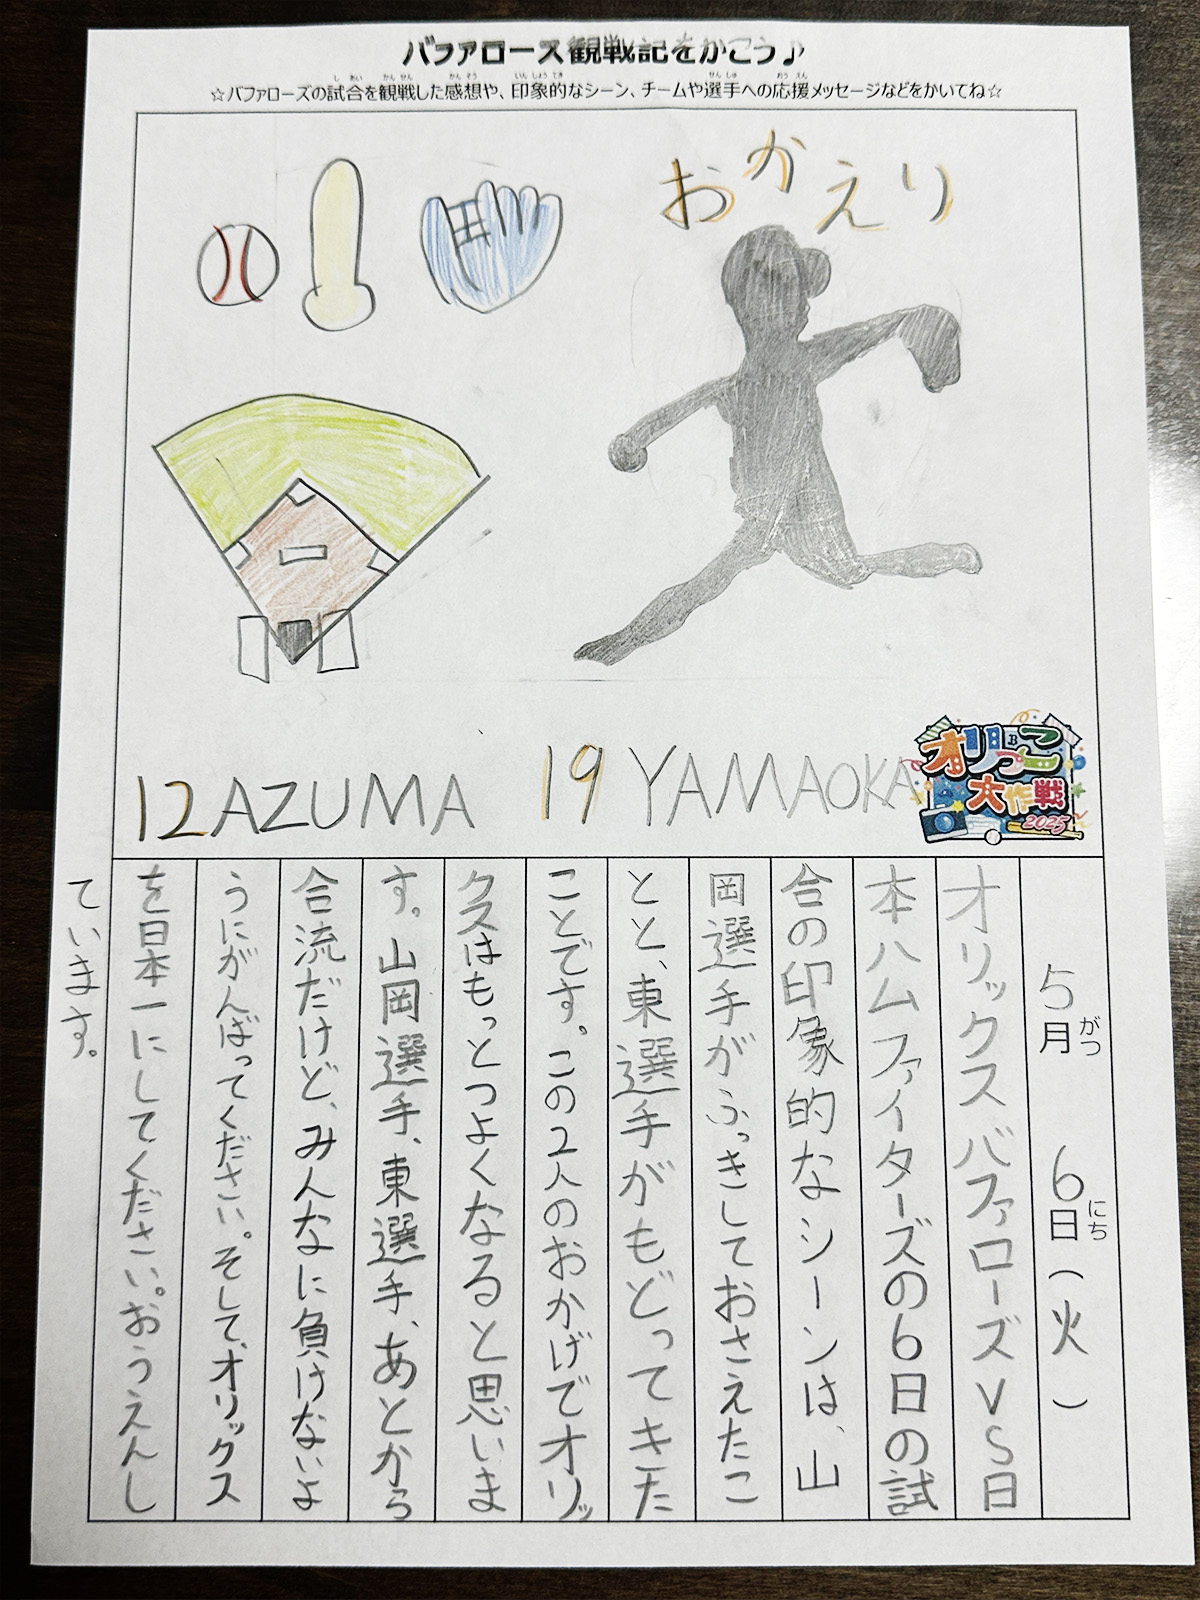 バファローズ観戦記をかこう♪
☆バファローズの試合を観戦した感想や、印象的なシーン、チームや選手への応援メッセージなどをかいてね☆
おかえり
12 AZUMA 19 YAMAOKA
オリっこ
大作戦
2025
5月6日(火)
オリックスバファローズVS日
本ハムファイターズの6日の試
合の印象的なシーンは、山
岡選手がふっきしておさえたこ
とと、東選手がもどってきた
ことです。この2人のおかげでオリッ
クスはもっとつよくなると思いま
す。山岡選手、東選手、あとから
合流だけど、みんなに負けないよ
うにがんばってください。そして、オリックス
を日本一にしてください。おうえんし
ています。